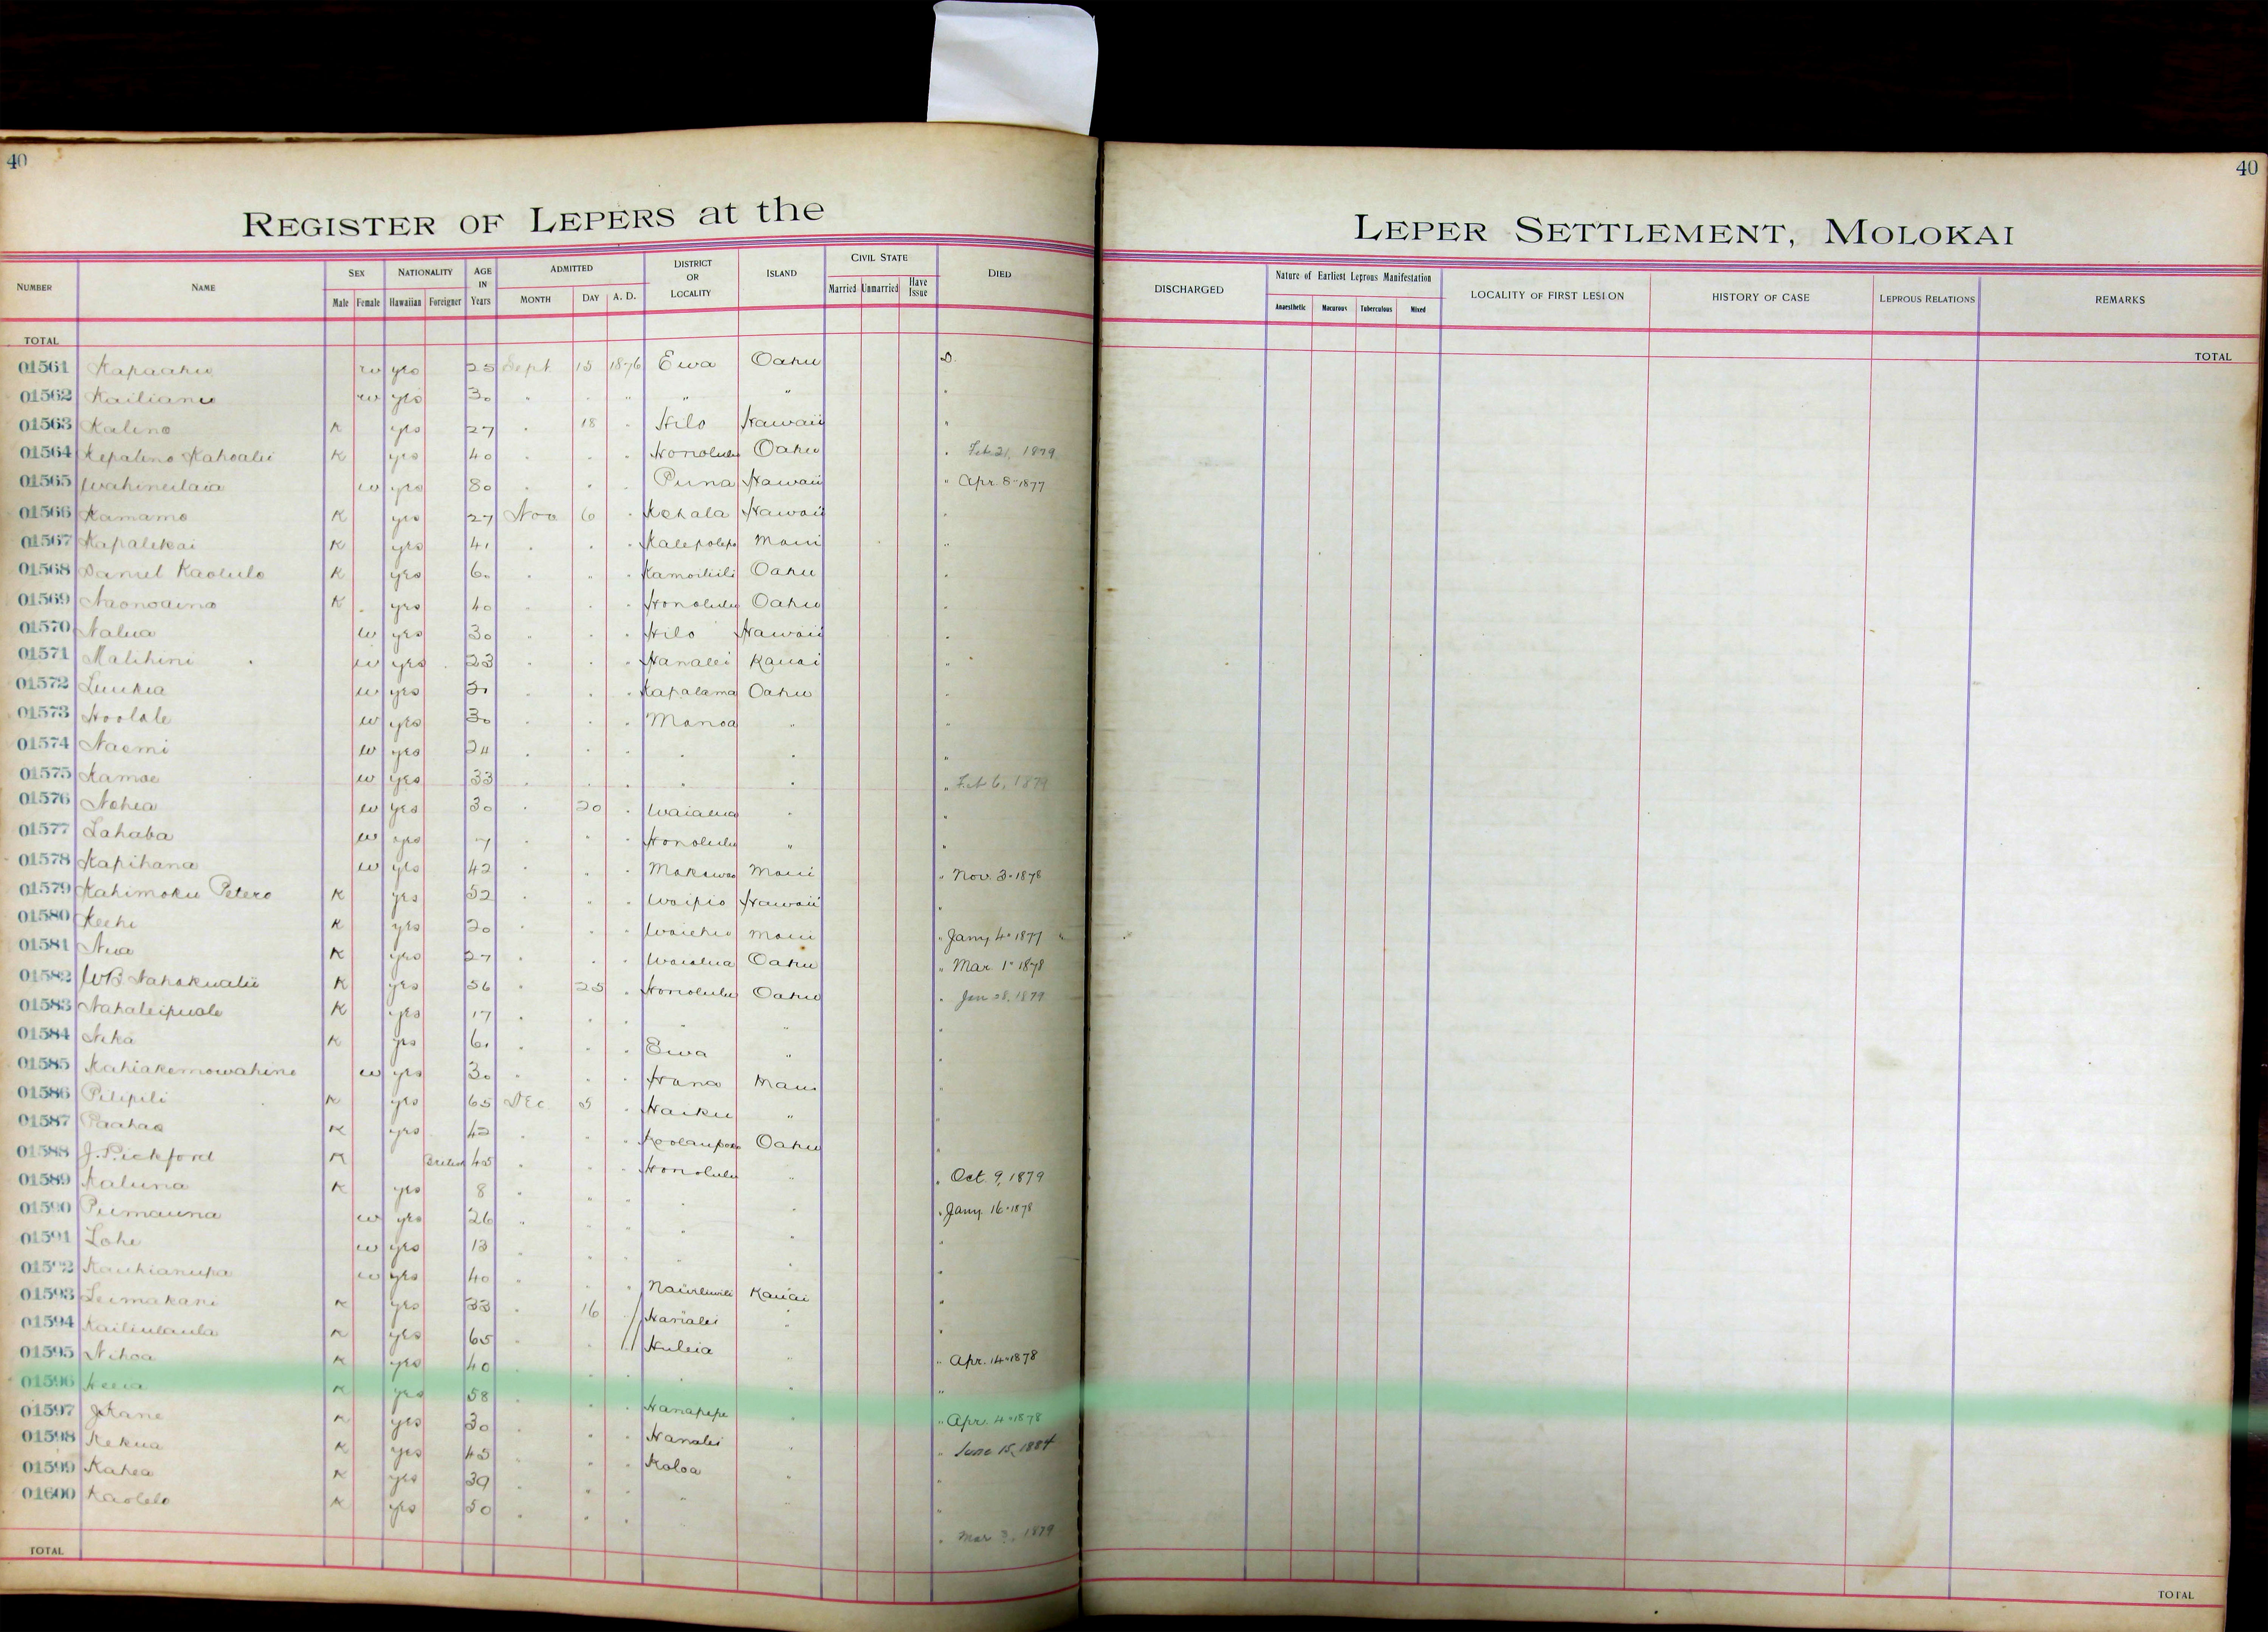 40
REGISTER OF LEPERS at the
NUMBER NAME SEX Male Female NATIONALITY Hawaiian Foreigner AGE IN Years ADMITTED MONTH DAY A. D. DISTRICT OR LOCALITY ISLAND CIVIL STATE Married Unmarried Have Issue DIED
TOTAL
01561 Kapaahu w yes 25 Sept 15 1876 Ewa Oahu D.
01562 Kailianu w yes 30 " " " " " "
01563 Kalino K yes 27 " 18 " Hilo Hawaii "
01564 Kepalino Kahoalii K yes 40 " " " Honolulu Oahu " Feb 21, 1879
01565 Wahineilaia w yes 80 " " " Puna Hawaii " Apr. 8 - 1877
01566 Kamamo K yes 27 Nov 6 " Kohala Hawaii "
01567 Kapalikai K yes 41 " " " Kalepolepo Maui "
01568 Daniel Kaolulo K yes 60 " " " Kamoiliili Oahu "
01569 Naonoaina K yes 40 " " " Honolulu Oahu "
01570 Nalua w yes 30 " " " Hilo Hawaii "
01571 Malihini w yes 23 " " " Hanalei Kauai "
01572 Luukia w yes " " " Kapalama Oahu "
01573 Hoolale w yes 30 " " " Manoa " "
01574 Naomi w yes 24 " " " " " "
01575 Kamae w yes 33 " " " " " " Feb 6, 1879
01576 Nohea w yes 30 " 20 " Waialua " "
01577 Lahaba w yes 7 " " " Honolulu " "
01578 Kapihana w yes 42 " " " Makawao Maui " Nov. 3 - 1878
01579 Kahimoku Petero K yes 52 " " " Waipio Hawaii "
01580 Keehi K yes 20 " " " Waiehu Maui " Jany 4 - 1877
01581 Nua K yes 27 " " " Waialua Oahu " Mar. 1 - 1878
01582 WB Nahakualii K yes 56 " 25 " Honolulu Oahu " Jan 28, 1879
01583 Nahaleipuole K yes 17 " " " " " "
01584 Nika K yes 61 " " " Ewa " "
01585 Kahiakemowahine w yes 30 " " " Hana Maui "
01586 Pilipili K yes 65 Dec 5 " Haiku " "
01587 Paahao K yes 42 " " " Koolaupoko Oahu "
01588 J. Pickford K British 45 " " " Honolulu " " Oct. 9, 1879
01589 Kaluna K yes 8 " " " " " " Jany 16 - 1878
01590 Puimauna w yes 26 " " " " " "
01591 Lohe w yes 13 " " " " "
01592 Kauhianupa w yes 40 " " " Nawiliwili Kauai "
01593 Leimakani K yes 33 " 16 Hanalei " "
01594 Kailiulaula K yes 65 " " Huleia " " Apr. 14 - 1878
01595 Nihoa K yes 40 " " " " " "
01596 Heeia K yes 58 " " " Hanapepe " " Apr. 4 - 1878
01597 J Kane K yes 30 " " " Hanalei " " June 15, 1884
01598 Kekua K yes 45 " " " Koloa " "
01599 Kahea K yes 39 " " " " " "
01600 Kaolelo K yes 50 " " " " Mar 3, 1879
TOTAL
40
LEPER SETTLEMENT, MOLOKAI
DISCHARGED Nature of Earliest Leprous Manifestation Anaesthetic Macurous Tuberculous Mixed LOCALITY OF FIRST LESION HISTORY OF CASE LEPROUS RELATIONS REMARKS
TOTAL
TOTAL